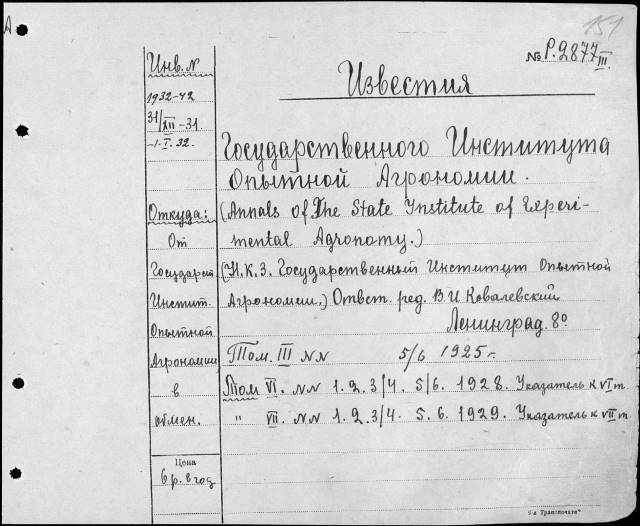 151
№ P.2877 III
Известия
Государственного Института
Опытной Агрономии.
(Annals of The State Institute of Experi-
mental Agronomy.)
(Н.К.З. Государственный Институт Опытной
Агрономии.) Ответ. ред. В.И Ковалевский
Ленинград. 8º
Том. III NN 5/6 1925 г.
Том VI. NN 1. 2. 3/4. 5/6. 1928. Указатель к VI т.
" VII. NN 1. 2. 3/4. 5. 6. 1929. Указатель к VII т.
Инв. N
1932-42
31/XII-31
-1. I. 32.
Откуда:
От
Государст
Инстит.
Опытной
Агрономии
в
обмен.
Цена
6 р. в год